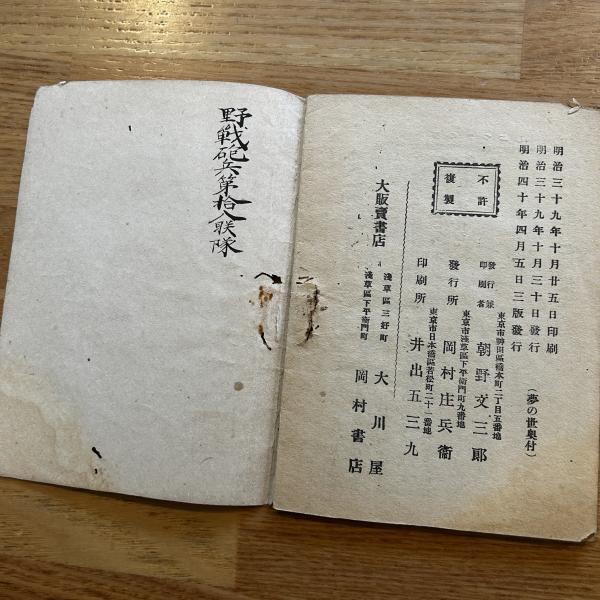 明治三十九年十月廿五日印刷
明治三十九年十月三十日發行
明治四十年四月五日三版發行
(夢の世奥付)
不許
複製
發行兼
印刷者
東京市神田區橋本町二丁目五番地
朝野文三郎
東京市淺草區下平衞門町九番地
發行所 岡村庄兵衞
東京市日本橋區若松町二十一番地
印刷所 井出五三九
大販賣書店
淺草區三好町 大川屋
淺草區下平衞門町 岡村書店
野戰砲兵第拾八联隊